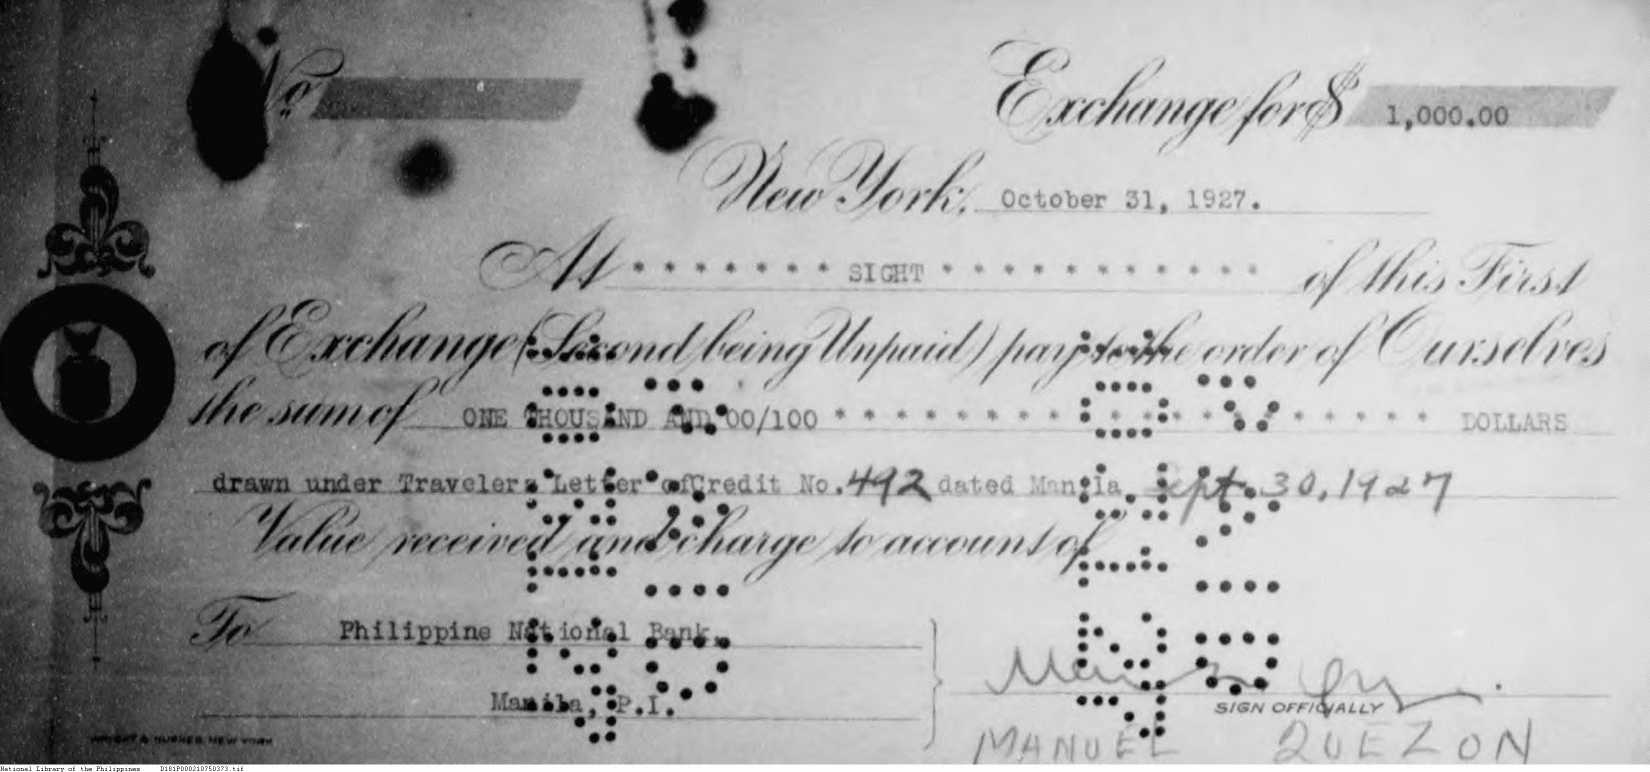 No
Exchange for $ 1,000.00
New York, October 31, 1927.
At * * * * * * * SIGHT * * * * * * * * * * * of this First
of Exchange (Second being Unpaid) pay to the order of Ourselves
the sum of ONE THOUSAND AND 00/100 * * * * * * * * * * * * * * * * * * * * DOLLARS
drawn under Travelers Letter of Credit No. 492 dated Manila, Sept. 30, 1927
Value received and charge to account of
To Philippine National Bank,
Manila, P.I.
SIGN OFFICIALLY
MANUEL QUEZON
National Library of the Philippines D101P000210750373.tif